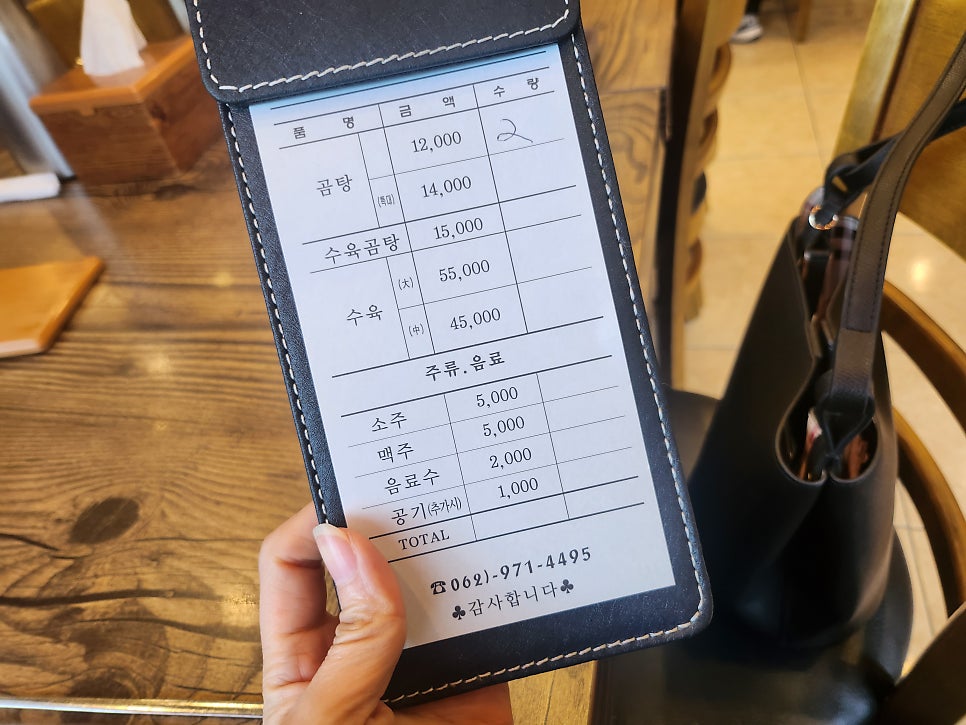 품 명 금 액 수 량
곰탕 12,000 2
(특대) 14,000
수육곰탕 15,000
수육 (大) 55,000
(中) 45,000
주류.음료
소주 5,000
맥주 5,000
음료수 2,000
공기(추가시) 1,000
TOTAL
☎062)-971-4495
♣감사합니다♣